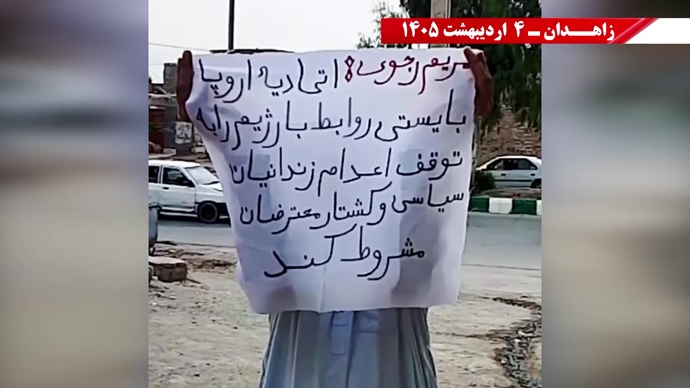 زاهـدان ـ ۴ اردیبهشت ۱۴۰۵
مریم رجوی: اتحادیه اروپا
بایستی روابط با رژیم را به
توقف اعدام زندانیان
سیاسی و کشتار معترضان
مشروط کند